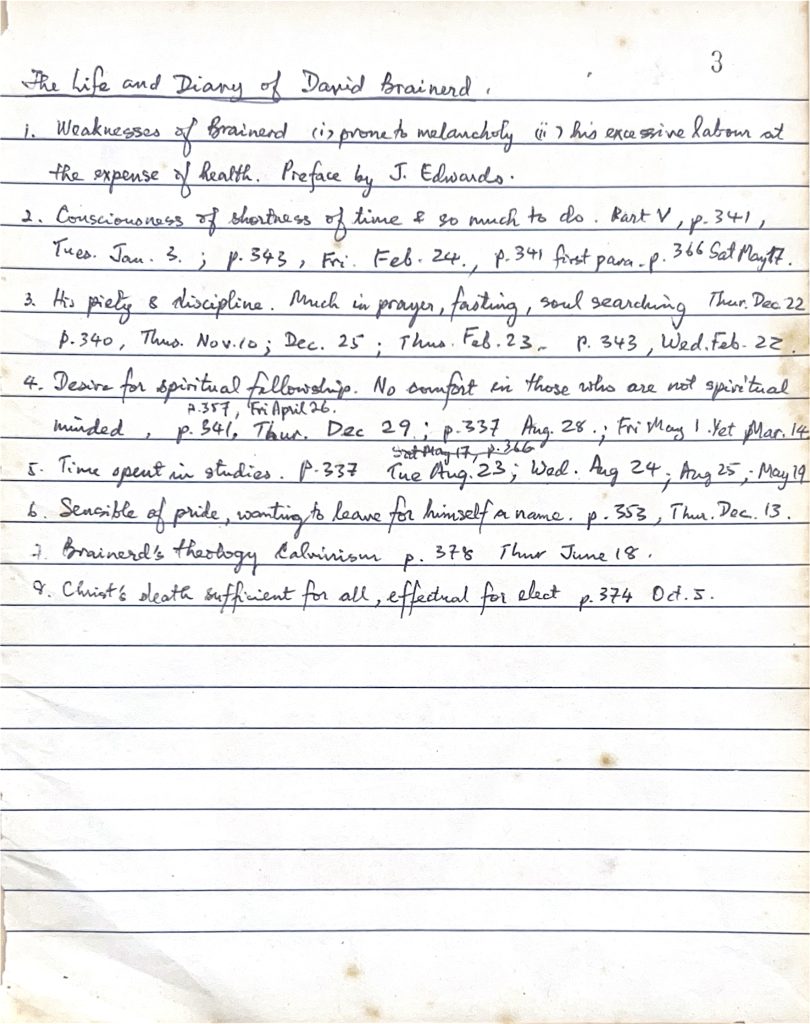 3
The Life and Diary of David Brainerd.
1. Weaknesses of Brainerd (i) prone to melancholy (ii) his excessive labour at
the expense of health. Preface by J. Edwards.
2. Consciousness of shortness of time & so much to do. Part V, p.341,
Tues. Jan. 3. ; p.343, Fri. Feb. 24., p.341 first para. p.366 Sat May 17.
3. His piety & discipline. Much in prayer, fasting, soul searching Thur. Dec 22
p.340, Thus. Nov.10; Dec. 25 ; Thus. Feb. 23. p. 343, Wed. Feb. 22.
4. Desire for spiritual fellowship. No comfort in those who are not spiritual
p.357, Fri April 26.
minded, p.341, Thur. Dec 29.; p.337 Aug. 28.; Fri May 1. Yet Mar. 14
Sat May 17, p.366
5. Time spent in studies. P.337 Tue Aug. 23; Wed. Aug 24; Aug 25; May 19
6. Sensible of pride, wanting to leave for himself a name. p.353, Thur. Dec. 13.
7. Brainerd's theology Calvinism p. 378 Thur June 18.
8. Christ's death sufficient for all, effectual for elect p.374 Oct. 5.